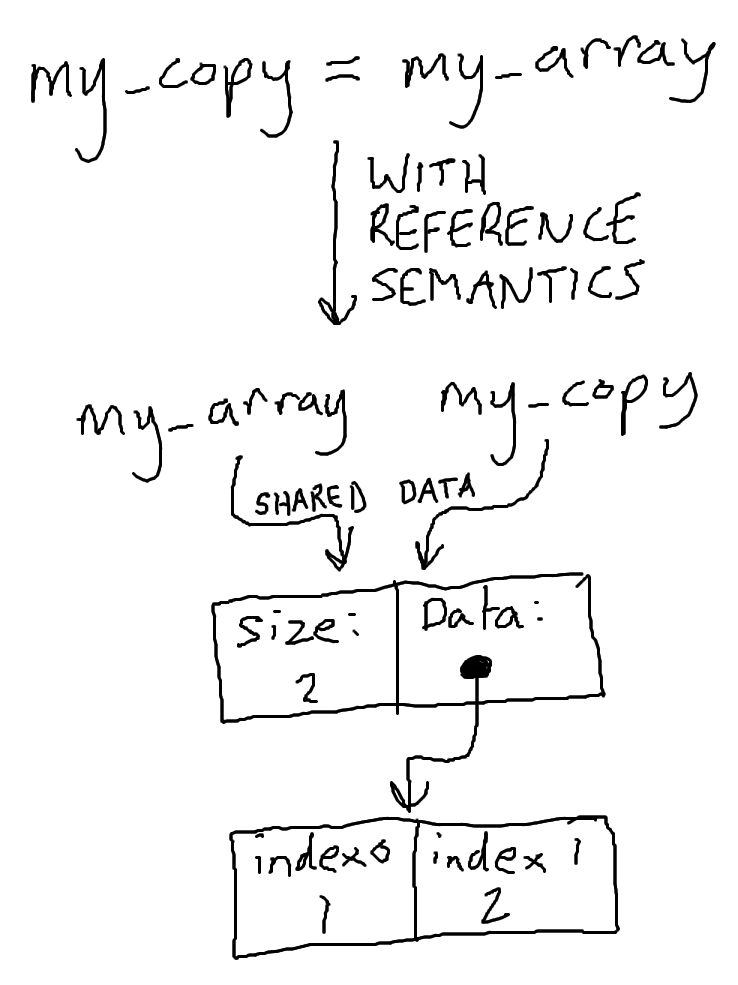 my_copy = my_array
WITH
REFERENCE
SEMANTICS
my_array my_copy
SHARED DATA
Size: Data:
2
index 0 index 1
1 2